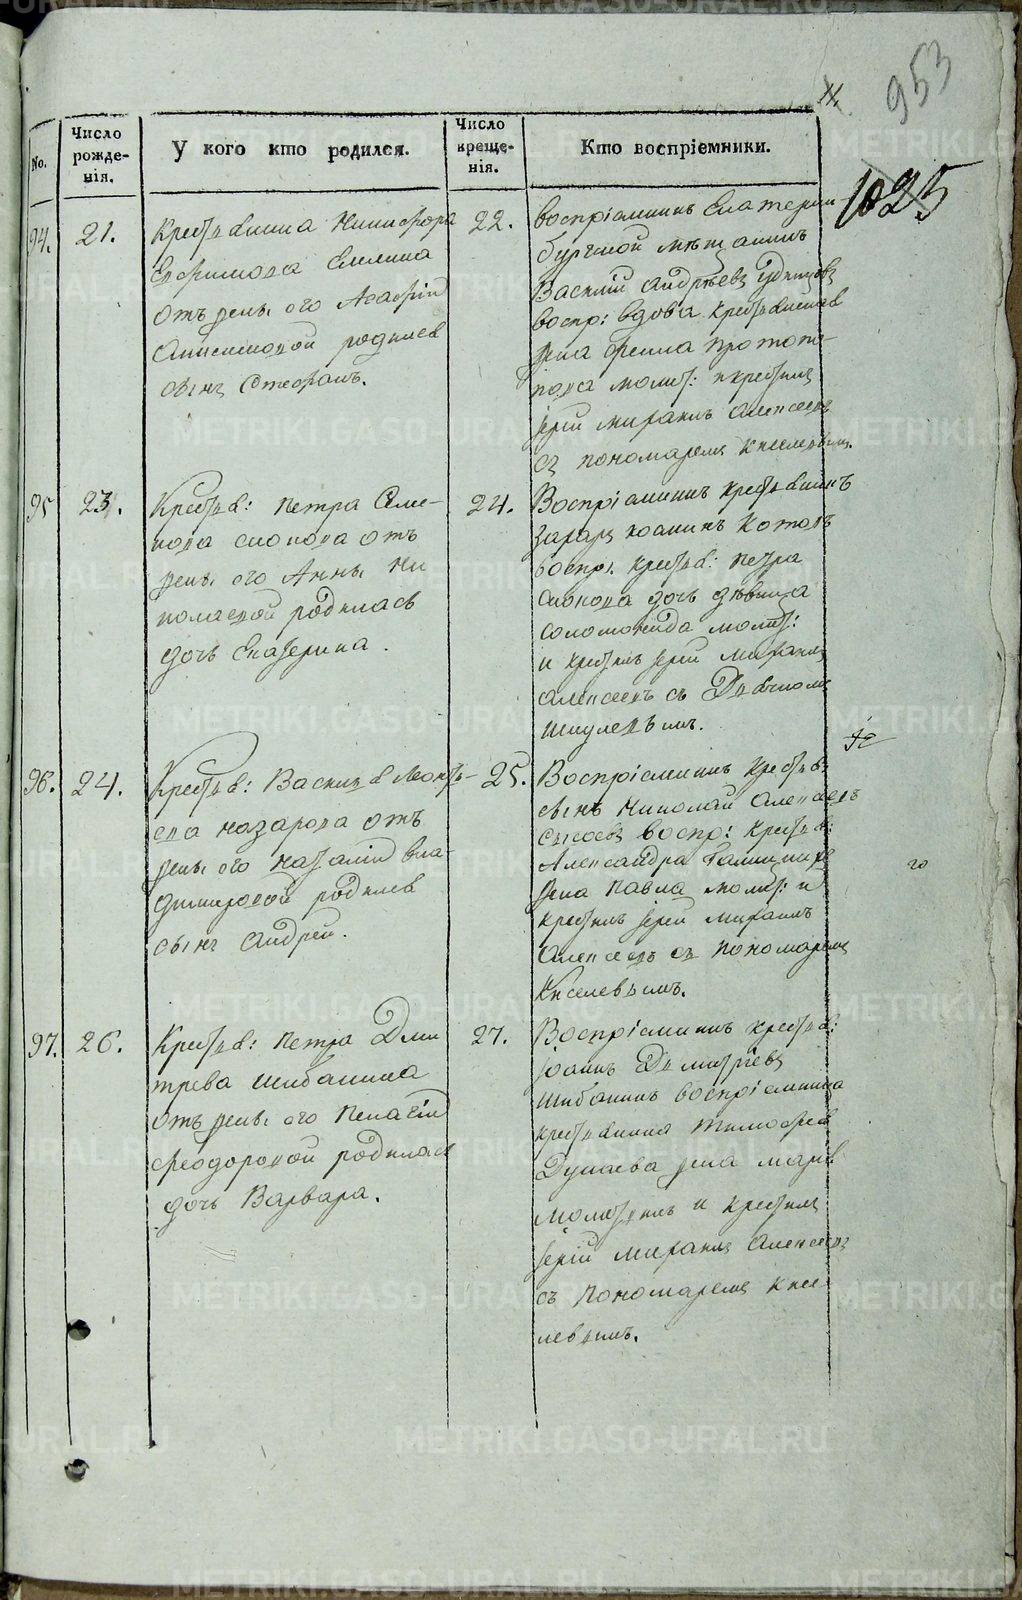 953
1025
No.
Число рожде-
нія.
У кого кто родился.
Число креще-
нія.
Кто воспріемники.
94.
21.
Крестьянина Никифора
Ефимова
отъ жены его Агафіи
родился
сынъ Стефанъ.
22.
воспріемникъ Екатерин
бургской мѣщанинъ
Василій Андреевъ
воспр: вдова крестьянская
жена
молит: и крестилъ
іерей Михаилъ Алексеевъ
съ пономаремъ Киселевымъ.
95
23.
Крестьян: Петра Семе-
нова отъ
жены его Анны Ни
колаевой родилась
дочь Екатерина.
24.
Воспріемникъ крестьянинъ
Захаръ Иоаннъ Котовъ
воспр: крестьян: Петра
дочь дѣвица
Соломонида молит:
и крестилъ іерей Михаилъ
Алексеевъ съ Дьячкомъ
96.
24.
Крестьян: Василья Леонть-
ева Назарова отъ
жены его Наталіи Вла-
димировой родился
сынъ Андрей.
25.
Воспріемникъ крестьян:
сынъ Николай Алексеевъ
воспр: крестьян:
Александра
жена Павла молит: и
крестилъ іерей Михаилъ
Алексеевъ съ пономаремъ
Киселевымъ.
97.
26.
Крестьян: Петра Дми
трева Шибанова
отъ жены его Пелагіи
Феодоровой родилась
дочь Варвара.
27.
Воспріемникъ крестьян:
Іоаннъ Дмитріевъ
воспріемница
крестьянина Тимофея
Дунаева жена Марія
молитвилъ и крестилъ
іерей Михаилъ Алексеевъ
съ пономаремъ Кисе
левымъ.
METRIKI.GASO-URAL.RU